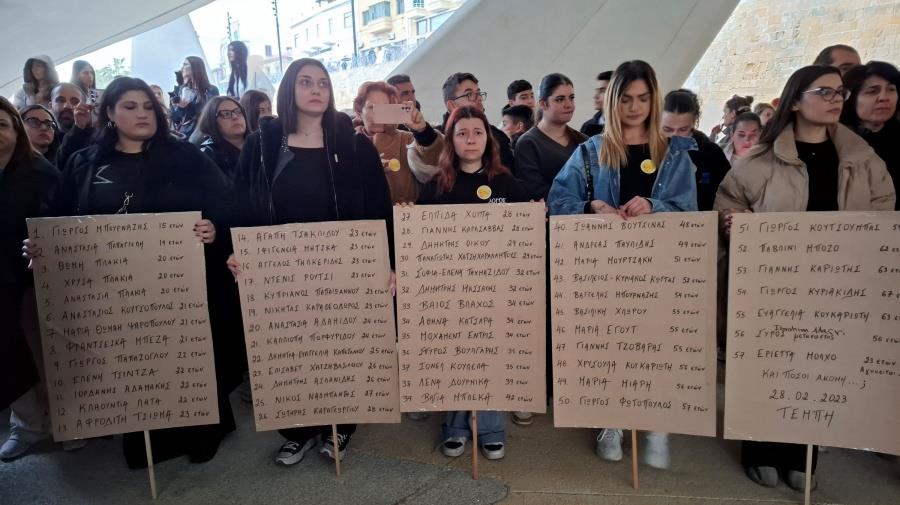 1. ΓΙΩΡΓΟΣ ΜΠΟΥΡΝΑΖΗΣ 15 ετών
2. ΑΝΑΣΤΑΣΙΑ ΠΑΠΑΓΓΕΛΗ 19 ετών
3. ΘΩΜΗ ΠΛΑΚΙΑ 20 ετών
4. ΧΡΥΣΑ ΠΛΑΚΙΑ 20 ετών
5. ΑΝΑΣΤΑΣΙΑ ΠΛΑΚΙΑ 20 ετών
6. ΑΝΑΣΤΑΣΙΟΣ ΚΟΥΤΣΟΠΟΥΛΟΣ 21 ετών
7. ΜΑΡΙΑ ΘΩΜΑΗ ΨΑΡΟΠΟΥΛΟΥ 21 ετών
8. ΦΡΑΝΤΣΕΣΚΑ ΜΠΕΖΑ 21 ετών
9. ΓΙΩΡΓΟΣ ΠΑΠΑΖΟΓΛΟΥ 22 ετών
10. ΕΛΕΝΗ ΤΣΙΝΤΖΑ 22 ετών
11. ΙΟΡΔΑΝΗΣ ΑΔΑΜΑΚΗΣ 22 ετών
12. ΚΛΑΟΥΝΤΙΑ ΛΑΤΑ 22 ετών
13. ΑΦΡΟΔΙΤΗ ΤΣΙΩΜΑ 23 ετών
14. ΑΓΑΠΗ ΤΣΑΚΛΙΔΟΥ 23 ετών
15. ΙΦΙΓΕΝΕΙΑ ΜΗΤΣΚΑ 23 ετών
16. ΑΓΓΕΛΟΣ ΤΗΛΚΕΡΙΔΗΣ 23 ετών
17. ΝΤΕΝΙΣ ΡΟΥΤΣΙ 23 ετών
18. ΚΥΠΡΙΑΝΟΣ ΠΑΠΑΪΩΑΝΝΟΥ 23 ετών
19. ΝΙΚΗΤΑΣ ΚΑΡΑΘΕΟΔΩΡΟΣ 23 ετών
20. ΑΝΑΣΤΑΣΙΑ ΑΔΑΜΙΔΟΥ 24 ετών
21. ΚΑΛΛΙΟΠΗ ΠΟΡΦΥΡΙΔΟΥ 24 ετών
22. ΔΗΜΗΤΡΑ ΕΥΑΓΓΕΛΙΑ ΚΑΠΕΤΑΝΙΟΥ 25 ετών
23. ΕΛΙΣΑΒΕΤ ΧΑΤΖΗΒΑΣΙΛΕΙΟΥ 26 ετών
24. ΔΗΜΗΤΡΗΣ ΑΣΛΑΝΙΔΗΣ 26 ετών
25. ΝΙΚΟΣ ΝΑΛΜΠΑΝΤΗΣ 27 ετών
26. ΣΩΤΗΡΗΣ ΚΑΡΑΓΕΩΡΓΙΟΥ 28 ετών
27. ΕΛΠΙΔΑ ΧΟΥΠΑ 28 ετών
28. ΓΙΑΝΝΗΣ ΚΑΡΑΣΑΒΒΑΣ 28 ετών
29. ΔΗΜΗΤΡΗΣ ΟΙΚΟΥ 29 ετών
30. ΠΑΝΑΓΙΩΤΗΣ ΧΑΤΖΗΧΑΡΑΛΑΜΠΟΥΣ 29 ετών
31. ΣΟΦΙΑ-ΕΛΕΝΗ ΤΑΧΜΑΖΙΔΟΥ 32 ετών
32. ΔΗΜΗΤΡΗΣ ΜΑΣΣΑΛΗΣ 32 ετών
33. ΒΑΪΟΣ ΒΛΑΧΟΣ 34 ετών
34. ΑΘΗΝΑ ΚΑΤΣΑΡΑ 34 ετών
35. ΜΟΧΑΜΕΝΤ ΕΝΤΡΙΣ 34 ετών
36. ΣΠΥΡΟΣ ΒΟΥΛΓΑΡΗΣ 35 ετών
37. ΙΟΝΕΛ ΚΟΥΛΕΑ 35 ετών
38. ΛΕΝΑ ΔΟΥΡΜΙΚΑ 39 ετών
39. ΒΑΓΙΑ ΜΠΛΕΚΑ 42 ετών
40. ΙΩΑΝΝΗΣ ΒΟΥΤΣΙΝΑΣ 48 ετών
41. ΑΝΔΡΕΑΣ ΠΑΥΛΙΔΗΣ 49 ετών
42. ΜΑΡΙΑ ΜΟΥΡΤΖΑΚΗ 51 ετών
43. ΒΑΣΙΛΕΙΟΣ-ΚΥΡΙΑΚΟΣ ΚΟΤΤΑΣ 52 ετών
44. ΒΑΓΓΕΛΗΣ ΜΠΟΥΡΝΑΖΗΣ 54 ετών
45. ΒΑΣΙΛΙΚΗ ΧΛΩΡΟΥ 55 ετών
46. ΜΑΡΙΑ ΕΓΟΥΤ 55 ετών
47. ΓΙΑΝΝΗΣ ΤΖΟΒΑΡΑΣ 55 ετών
48. ΧΡΥΣΟΥΛΑ ΚΟΥΚΑΡΙΩΤΗ 56 ετών
49. ΜΑΡΙΑ ΜΙΑΡΗ 56 ετών
50. ΓΙΩΡΓΟΣ ΦΩΤΟΠΟΥΛΟΣ 57 ετών
51. ΓΙΩΡΓΟΣ ΚΟΥΤΣΟΥΜΠΑΣ 59
52. ΠΑΒΛΙΝΙ ΜΠΟΖΟ 62
53. ΓΙΑΝΝΗΣ ΚΑΡΙΩΤΗΣ 63 ετ
54. ΓΙΩΡΓΟΣ ΚΥΡΙΑΚΙΔΗΣ 67 ετ
55. ΕΥΑΓΓΕΛΙΑ ΚΟΥΚΑΡΙΩΤΗ 63
56. ΣΥΡΟΣ μετανάστης
57. ΕΡΙΕΤΤΑ ΜΟΛΧΟ 23 ετών
ΚΑΙ ΠΟΣΟΙ ΑΚΟΜΗ...;
28.02.2023
ΤΕΜΠΗ
ΛΟΓΟΣ